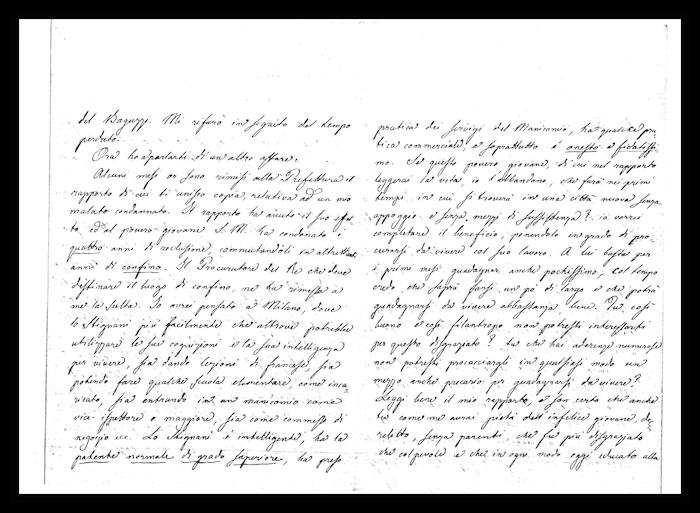 del Baguzzi. Mi rifarò in seguito del tempo
perduto.
Ora ho a parlarti di un altro affare.
Alcuni mesi or sono rimisi alla Prefettura il
rapporto di cui ti unisco copia, relativo ad un mio
malato condannato. Il rapporto ha avuto il suo effet
to, ed al povero giovane S. M. ha condonato i
quattro anni di reclusione commutandoli in altrettanti
anni di confino. Il Procuratore del Re che deve
destinare il luogo di confino, ne ha rimessa a
me la scelta. Io avrei pensato a Milano, dove
lo Stignani più facilmente che altrove potrebbe
utilizzare le sue cognizioni e la sua intelligenza
per vivere, sia dando lezioni di francese, sia
potendo fare qualche scuola elementare, come inca
ricato, sia entrando in un manicomio come
vice-ispettore o maggiore, sia come commesso di
negozio ecc. Lo Stignani è intelligente, ha la
patente normale di grado superiore, ha preso
pratica dei servigi del Manicomio, ha qualche pra
tica commerciale, e soprattutto è onesto e fidatissi
mo. Se questo povero giovane, di cui nel rapporto
leggerai la vita, io l'abbandono, che farà nei primi
tempi in cui si troverà in una città nuova senza
appoggio e senza mezzi di sussistenza? io vorrei
completare il beneficio, ponendolo in grado di pro-
curarsi da vivere col suo lavoro. A lui basta per
i primi mesi guadagnar anche pochissimo; col tempo
credo che saprà farsi un pò di largo e che potrà
guadagnarsi da vivere abbastanza bene. Tu così
buono e così filantropo non potresti interessarti
per questo disgraziato? tu che hai aderenze numerose
non potresti procacciargli in qualsiasi modo un
mezzo anche precario per guadagnarsi da vivere?
Leggi bene il mio rapporto, e son certo che anche
tu come me avrai pietà dell'infelice giovane, de-
relitto, senza parenti, che fu più disgraziato
che colpevole e che in ogni modo oggi educato alla